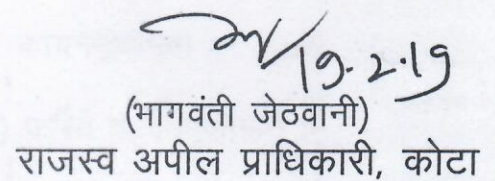 19.2.19
(भागवंती जेठवानी)
राजस्व अपील प्राधिकारी, कोटा